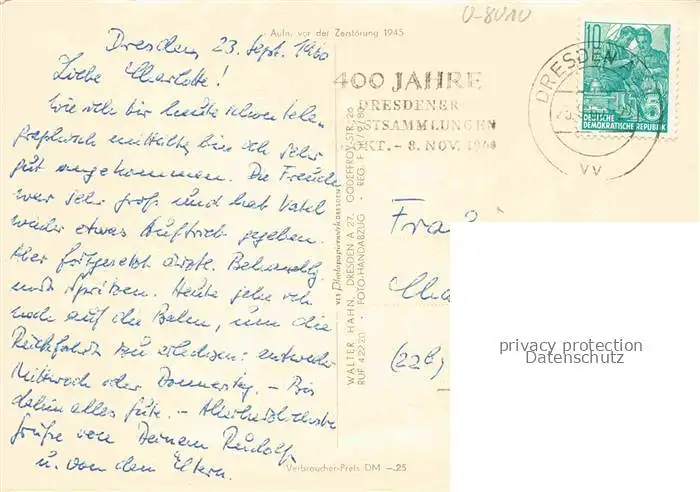 U-8010
Aufn. vor der Zerstörung 1945
Dresden, 23. Sept. 1960
Liebe Charlotte!
Wie ich dir heute schon tele-
graphisch mitteilte, bin ich sehr
gut angekommen. Die Freude
war sehr groß und hat Vatel
wieder etwas Auftrieb gegeben.
Aber fortgesetzt ärztl. Behandlg
mit Spritzen. Heute gehe ich
noch auf die Bahn, um die
Rückfahrt zu erledigen: entweder
Mittwoch oder Donnerstag. – Bis
dahin alles Gute. – Allerherzlichste
Grüße von Deinem Rudolf
u. von den Eltern.
400 JAHRE
DRESDENER
STSAMMLUNGEN
KT. – 8. NOV. 1960
DRESDEN
VV
10
5
DEUTSCHE
DEMOKRATISCHE REPUBLIK
VEB Photopapierwerk DRESDEN
WALTER HAHN, DRESDEN A 27, GODEFFROY-STR. 26
RUF 42220 · FOTO-HANDABZUG
Fra
Cha
(22b)
privacy protection
Datenschutz
Verbraucher-Preis DM –.25